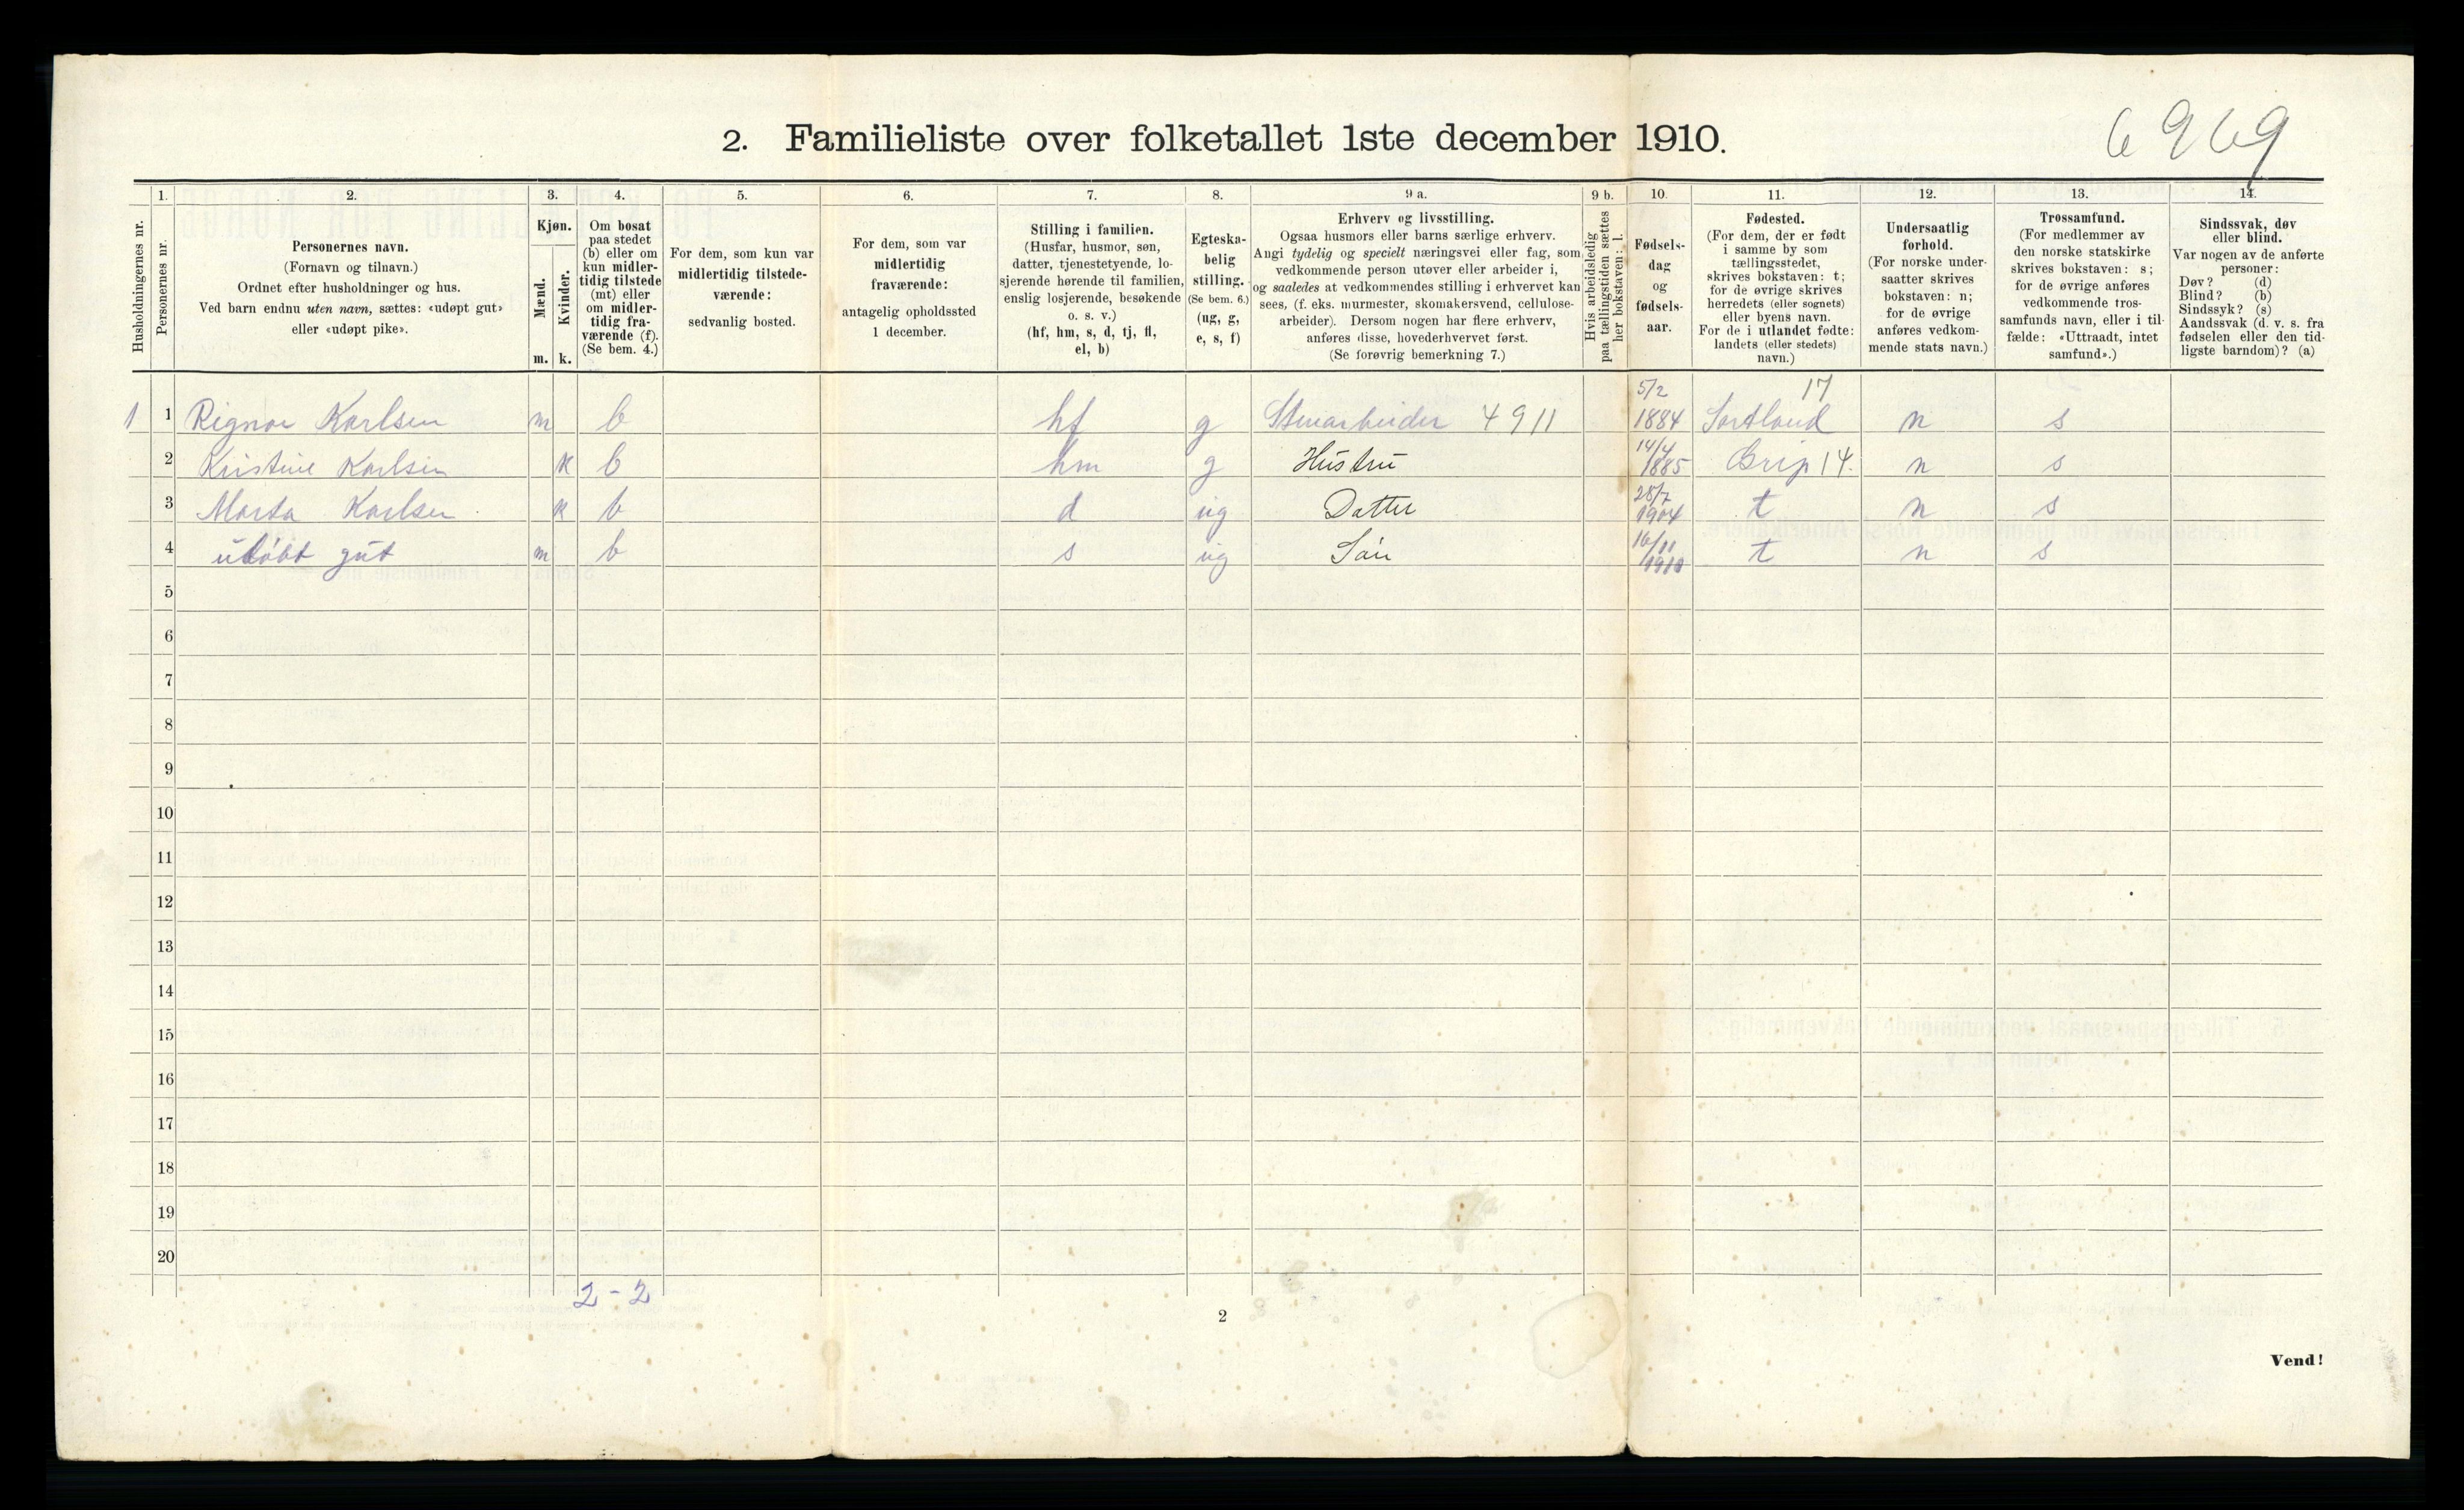 2. Familieliste over folketallet 1ste december 1910.
6969
1. 2. 3. 4. 5. 6. 7. 8. 9 a. 9 b. 10. 11. 12. 13. 14.
Husholdningernes nr.
Personernes nr.
Personernes navn.
(Fornavn og tilnavn.)
Ordnet efter husholdninger og hus.
Ved barn endnu uten navn, sættes: «udøpt gut»
eller «udøpt pike».
Kjøn.
Mænd.
Kvinder.
m. k.
Om bosat
paa stedet
(b) eller om
kun midler-
tidig tilstede
(mt) eller
om midler-
tidig fra-
værende (f).
(Se bem. 4.)
For dem, som kun var
midlertidig tilstede-
værende:
sedvanlig bosted.
For dem, som var
midlertidig
fraværende:
antagelig opholdssted
1 december.
Stilling i familien.
(Husfar, husmor, søn,
datter, tjenestetyende, lo-
sjerende hørende til familien,
enslig losjerende, besøkende
o. s. v.)
(hf, hm, s, d, tj, fl,
el, b)
Egteska-
belig
stilling.
(Se bem. 6.)
(ug, g,
e, s, f)
Erhverv og livsstilling.
Ogsaa husmors eller barns særlige erhverv.
Angi tydelig og specielt næringsvei eller fag, som
vedkommende person utøver eller arbeider i,
og saaledes at vedkommendes stilling i erhvervet kan
sees, (f. eks. murmester, skomakersvend, cellulose-
arbeider). Dersom nogen har flere erhverv,
anføres disse, hovederhvervet først.
(Se forøvrig bemerkning 7.)
Hvis arbeidsledig
paa tællingstiden sættes
her bokstaven: l.
Fødsels-
dag
og
fødsels-
aar.
Fødested.
(For dem, der er født
i samme by som
tællingsstedet,
skrives bokstaven: t;
for de øvrige skrives
herredets (eller sognets)
eller byens navn.
For de i utlandet fødte:
landets (eller stedets)
navn.)
Undersaatlig
forhold.
(For norske under-
saatter skrives
bokstaven: n;
for de øvrige
anføres vedkom-
mende stats navn.)
Trossamfund.
(For medlemmer av
den norske statskirke
skrives bokstaven: s;
for de øvrige anføres
vedkommende tros-
samfunds navn, eller i til-
fælde: «Uttraadt, intet
samfund».)
Sindssvak, døv
eller blind.
Var nogen av de anførte
personer:
Døv? (d)
Blind? (b)
Sindssyk? (s)
Aandssvak (d. v. s. fra
fødselen eller den tid-
ligste barndom)? (a)
5/2 17
1 1 Rignor Karlsen m b hf g Stenarbeider 4911 1884 Sortland n s
14/4
2 Kristine Karlsen k b hm g Hustru 1885 Grip 14. n s
28/7
3 Marta Karlsen k b d ug Datter 1904 t n s
16/11
4 udöbt gut m b s ug Sön 1910 t n s
5
6
7
8
9
10
11
12
13
14
15
16
17
18
19
20
2 - 2
2
Vend!